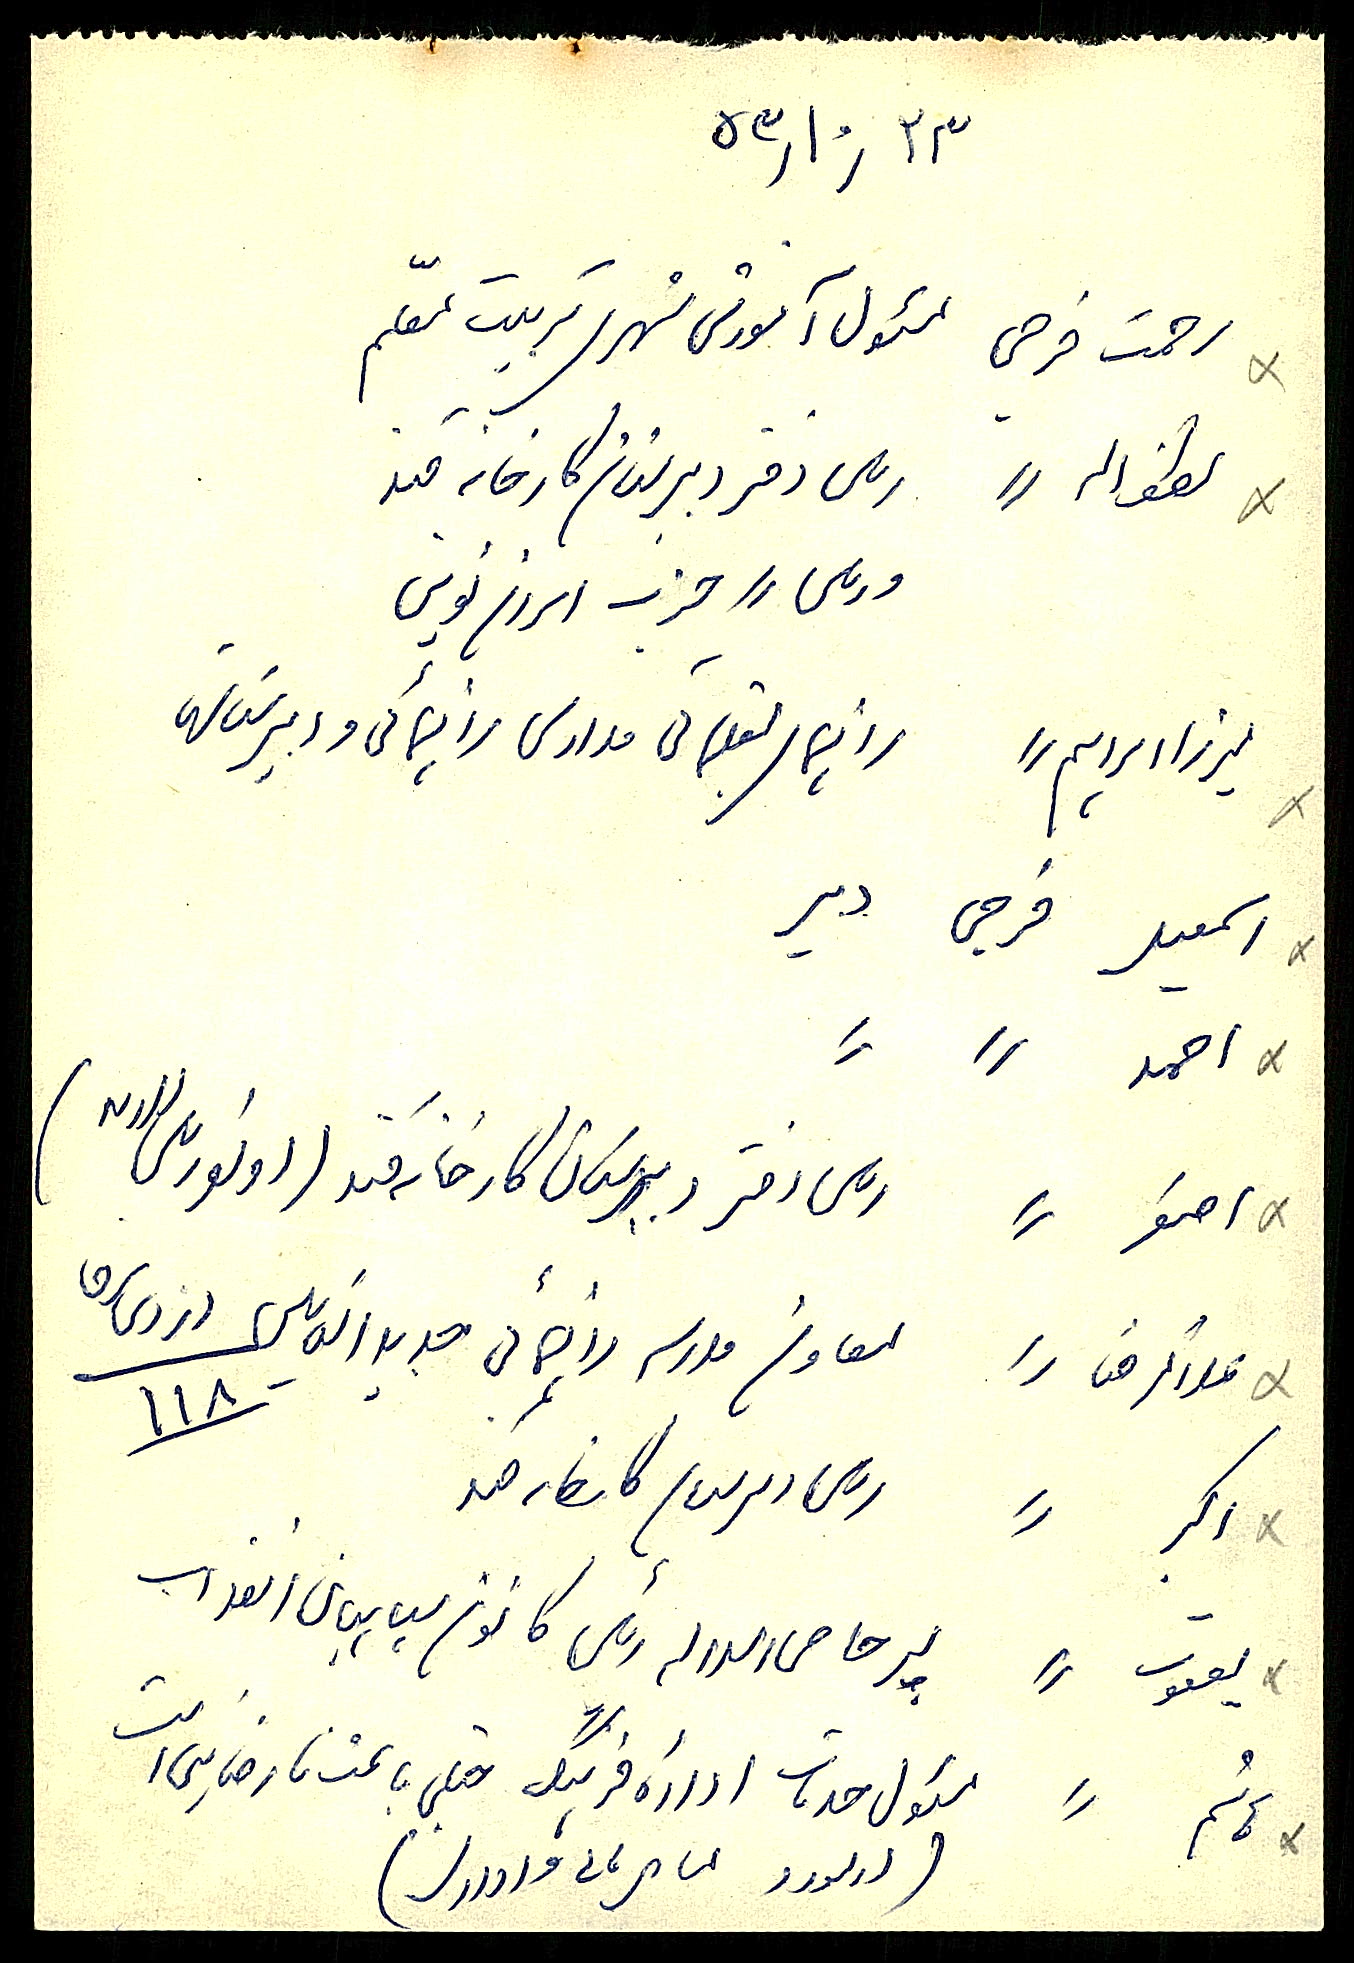 ۵۳ر۱۰ر۲۳
رحمت فرجی مسئول آموزش شهر تربیت معلّم
لطف‌اله 〃 رئیس دفتر دبیرستان کارخانه قند
و رئیس 〃 حزب ایران نوین
میرزا ابراهیم 〃 راهنمای تعلیماتی مدارس راهنمائی و دبیرستانها
اسمعیل فرجی دبیر
احمد 〃 〃
اصغر 〃 رئیس دفتر دبیرستان کارخانه قند (
غلامرضا 〃 معاون مدرسه راهنمائی جدید
۱۱۸
اکبر 〃 رئیس دبیرستان کارخانه قند
یعقوب 〃 پسر حاصل رئیس کانون سپاهیان انقلاب
هاشم 〃 مسئول خدمات اداره فرهنگ خیلی باعث نارضایتی است